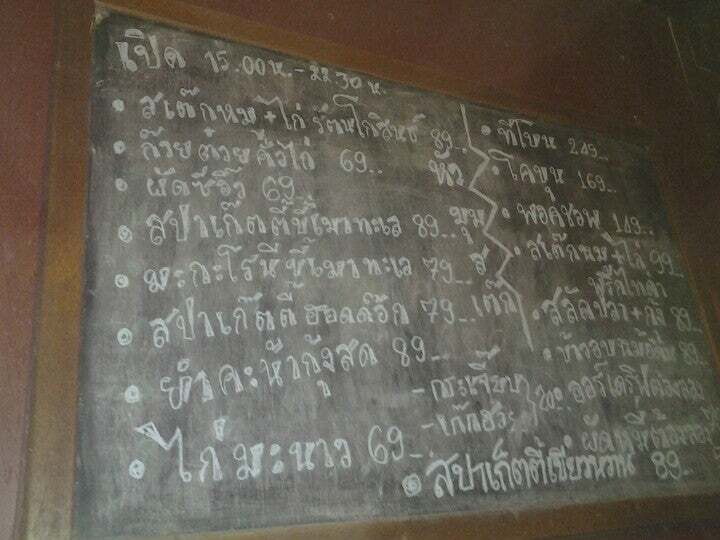 เปิด 15.00น.-22.30น.
• สเต๊กหมู+ไก่ รัตนโกสินทร์ 89..
• ก๋วยเตี๋ยวคั่วไก่ 69..
• ผัดซีอิ๊ว 69..
• สปาเก็ตตี้ขี้เมาทะเล 89..
• มะกะโรนีขี้เมาทะเล 79..
• สปาเก็ตตี้ ฮอตด๊อก 79..
• ยำคะน้ากุ้งสด 89..
• ไก่มะนาว 69..
หัว
มุม
ส
เต๊ก
• ทีโบน 249..
• โคขุน 169..
• พอคชอพ 149..
• สเต๊กหมู+ไก่ 99..
พริกไทดำ
• สลัดปลา+กุ้ง 89..
• ข้าวอบ 89..
- กระเจี๊ยบ
- เก๊กฮวย
20..
• ผัดหมี่
• สปาเก็ตตี้เขียวหวาน 89..